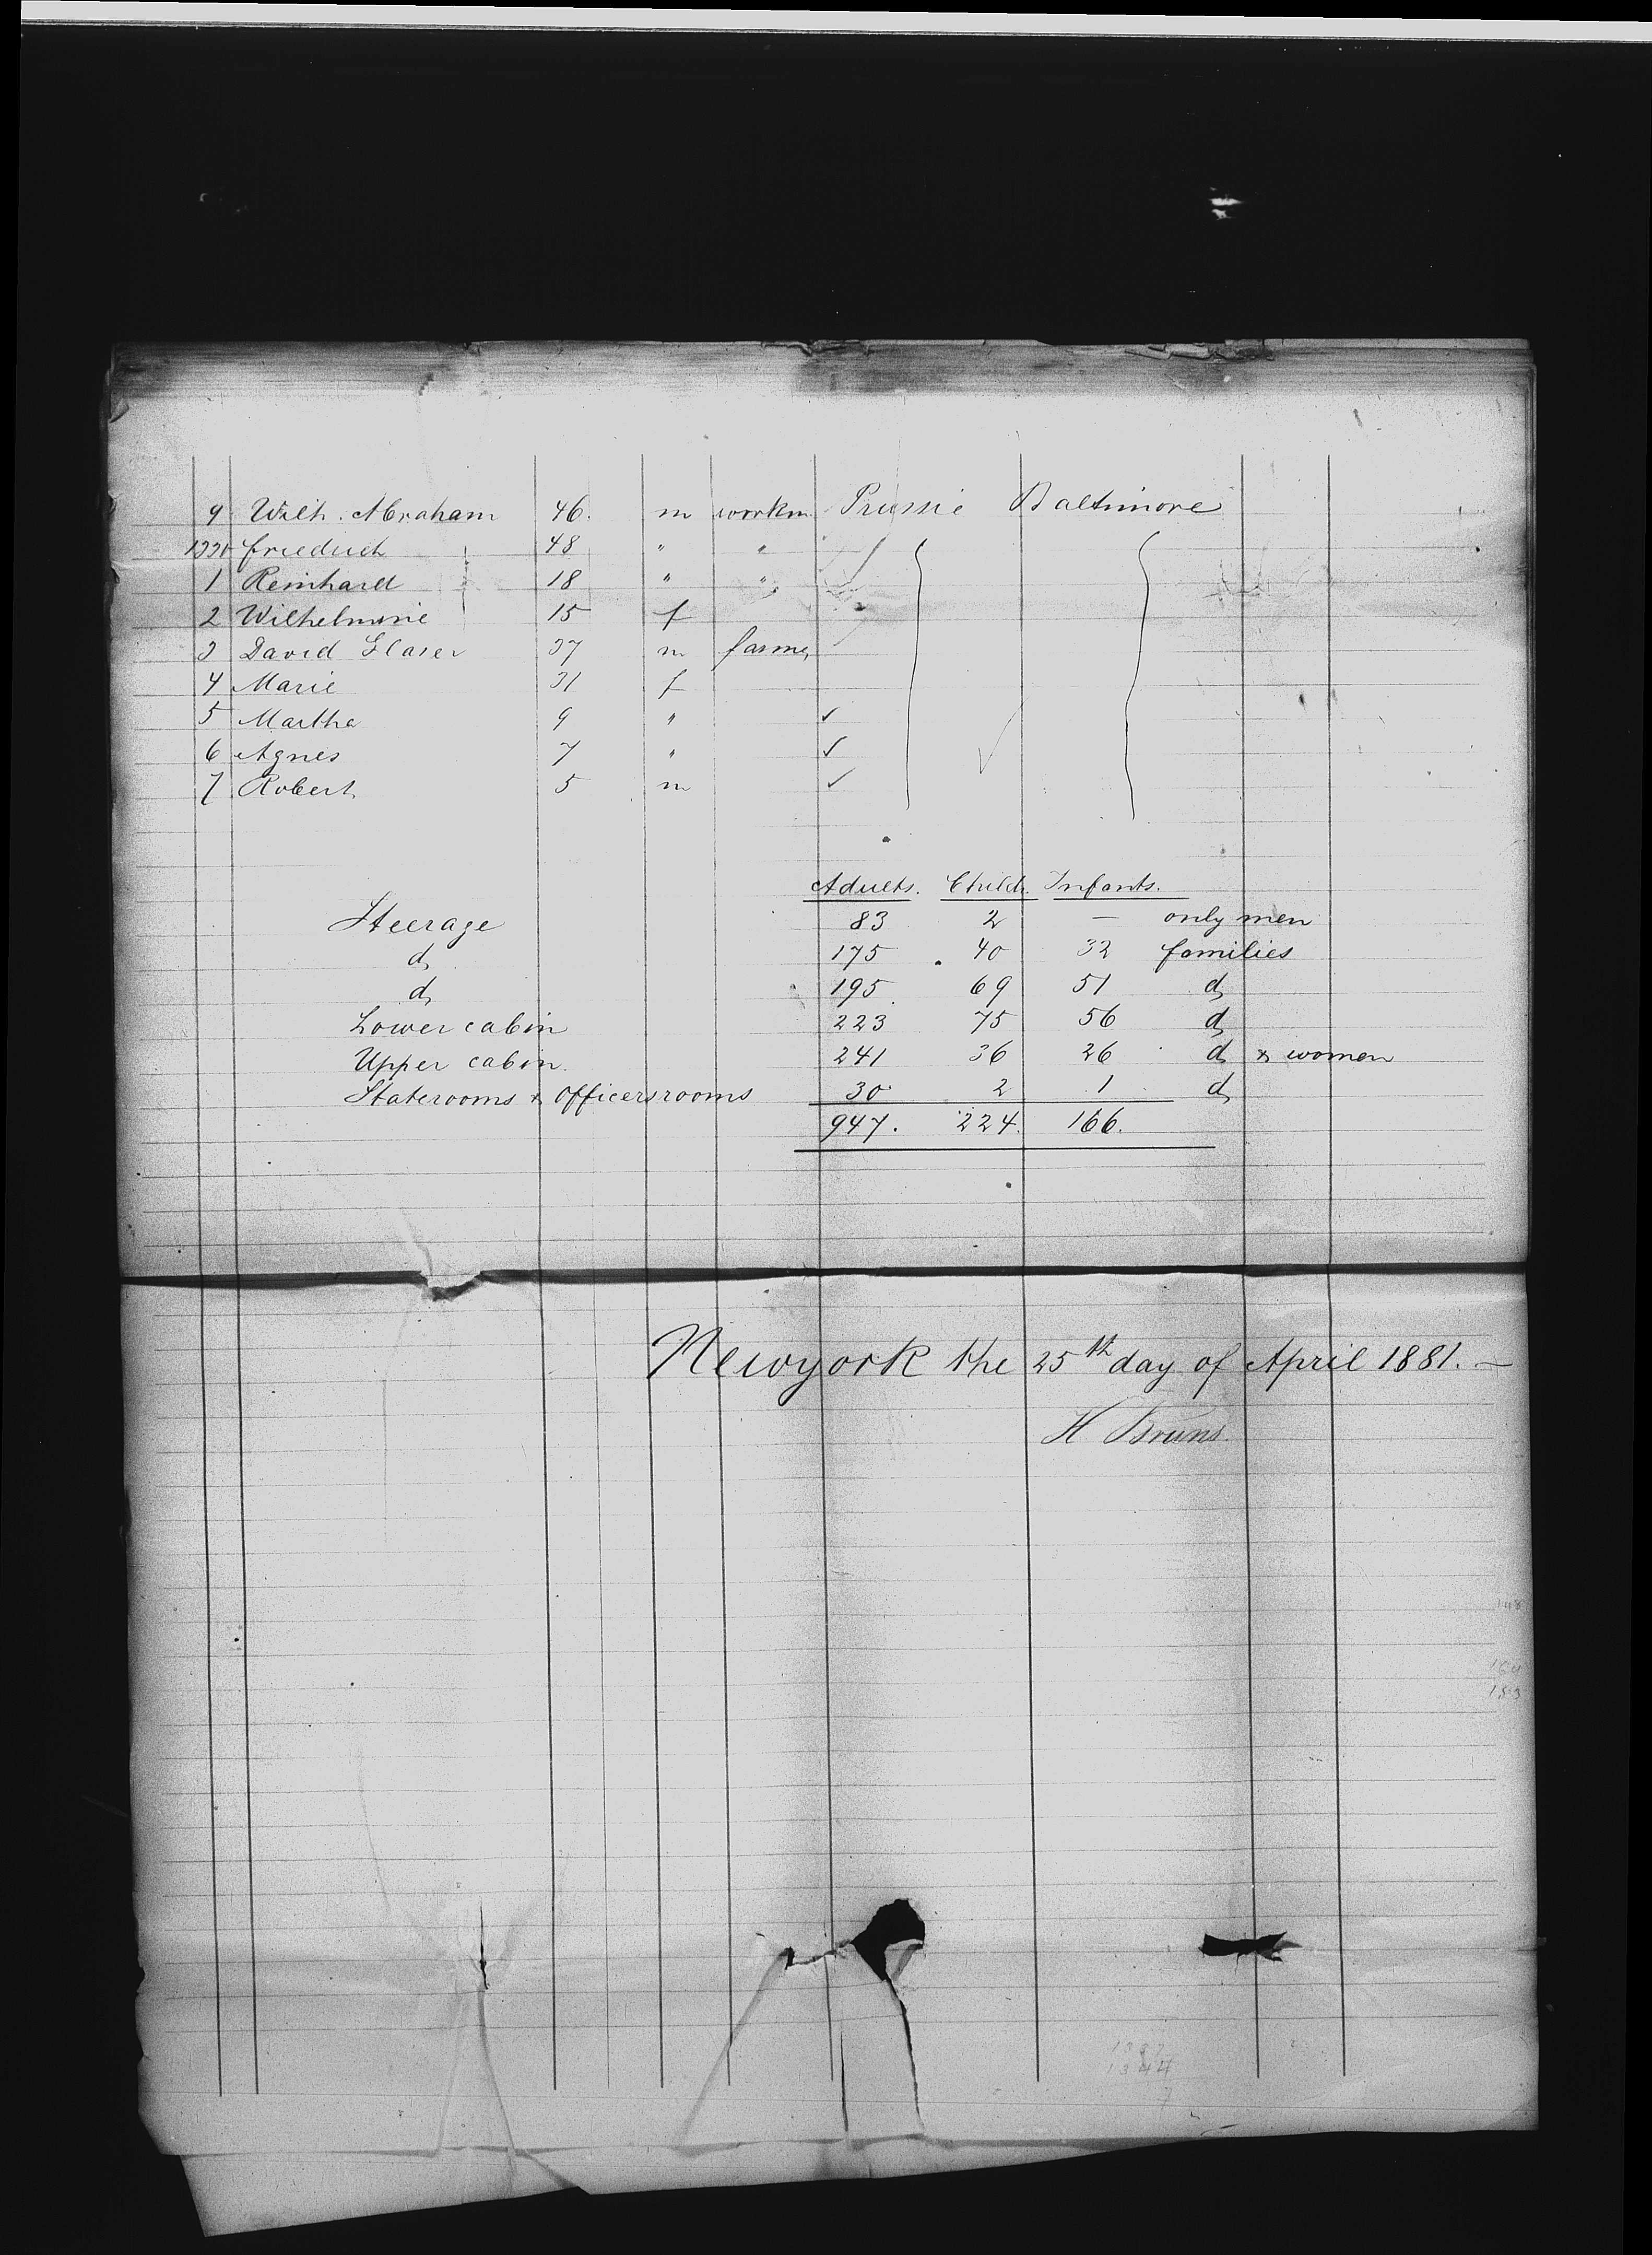 9 Wilh. Abraham 46. m workm Prussie Baltimore
1330 Friedrich 48 " "
1 Reinhard 18 " "
2 Wilhelmine 15 f
3 David Glaser 37 m farmer
4 Marie 31 f
5 Martha 9 " ✓
6 Agnes 7 " ✓
7 Robert 5 m ✓
Adults. Childr. Infants.
Steerage 83 2 — only men
do 175 40 32 families
do 195 69 51 do
Lower cabin 223 75 56 do
Upper cabin. 241 36 26 do & women
Staterooms & Officersrooms 30 2 1 do
947. 224. 166.
Newyork the 25th day of April 1881. —
H Bruns.
148
1344